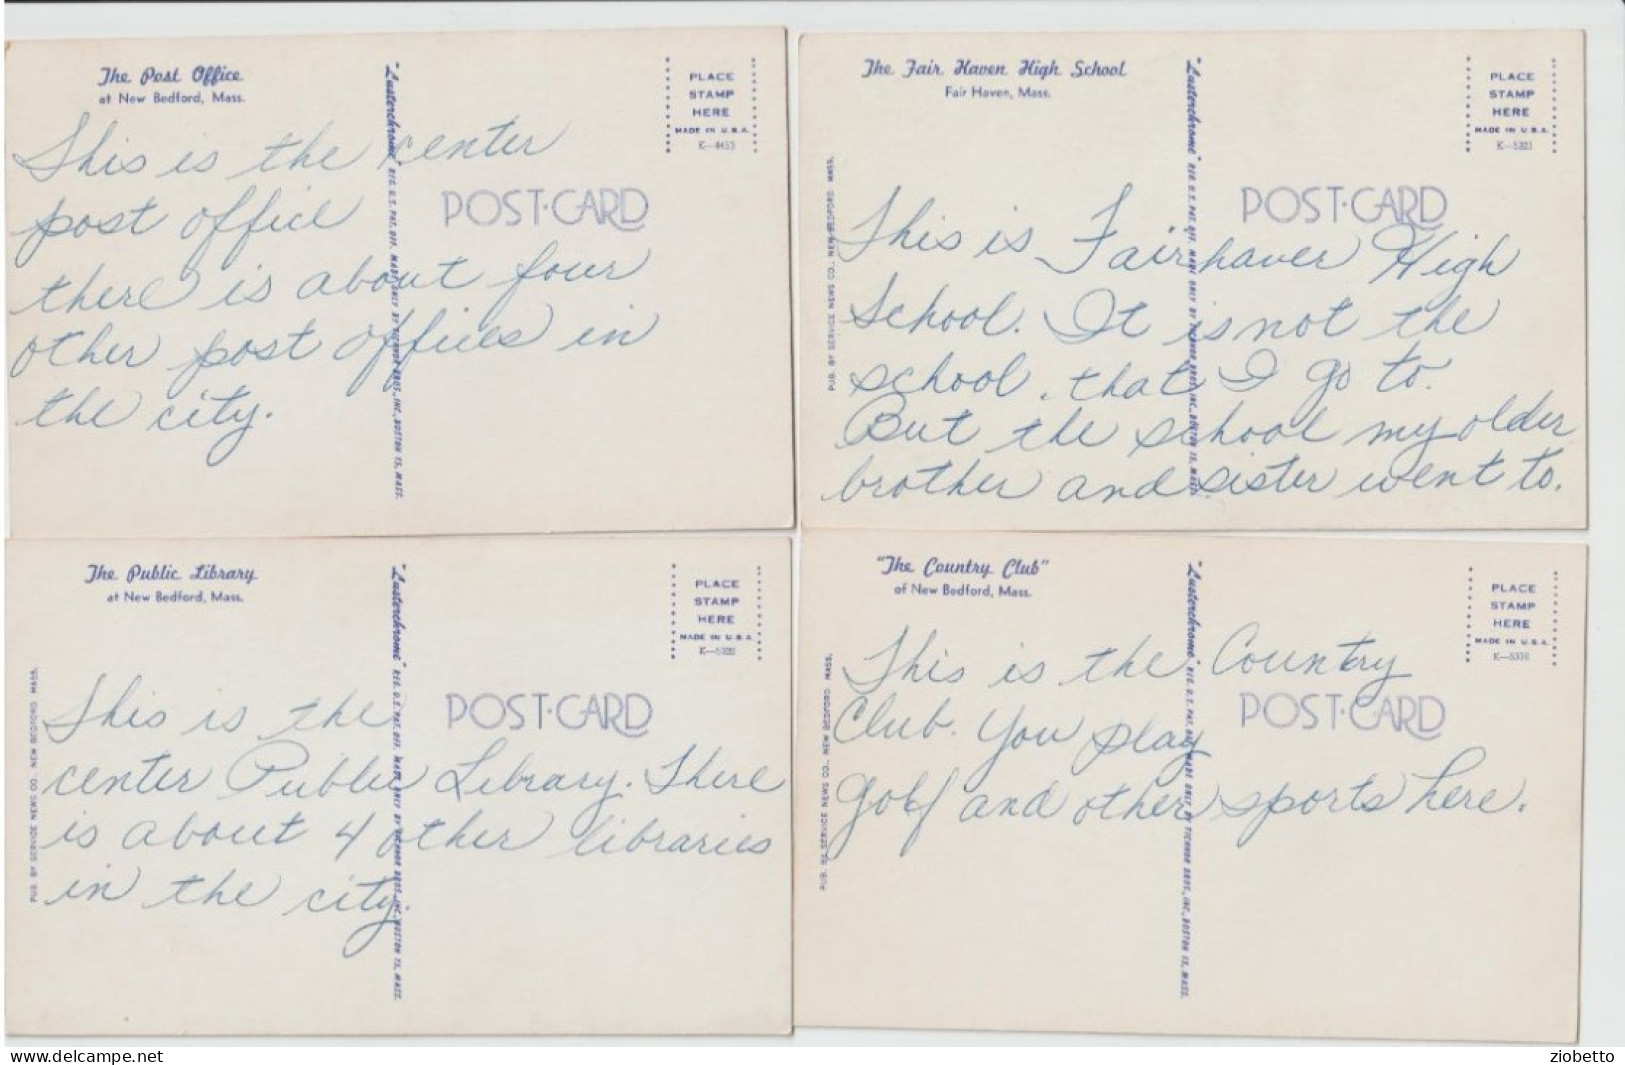 The Post Office
at New Bedford, Mass.
This is the center
post office
there is about four
other post offices in
the city.
"Lusterchrome" REG. U.S. PAT. OFF. MADE ONLY BY TICHNOR BROS., INC., BOSTON 15, MASS.
POST·CARD
PLACE
STAMP
HERE
MADE IN U.S.A.
K—4453
The Fair Haven High School
Fair Haven, Mass.
PUB. BY SERVICE NEWS CO., NEW BEDFORD MASS.
This is Fairhaver High
School. It is not the
school. that I go to.
But the school my older
brother and sister went to.
"Lusterchrome" REG. U.S. PAT. OFF. MADE ONLY BY TICHNOR BROS., INC., BOSTON 15, MASS.
POST·CARD
PLACE
STAMP
HERE
MADE IN U.S.A.
The Public Library
at New Bedford, Mass.
PUB. BY SERVICE NEWS CO., NEW BEDFORD MASS.
This is the
center Public Library. There
is about 4 other libraries
in the city.
"Lusterchrome" REG. U.S. PAT. OFF. MADE ONLY BY TICHNOR BROS., INC., BOSTON 15, MASS.
POST·CARD
PLACE
STAMP
HERE
MADE IN U.S.A.
"The Country Club"
of New Bedford, Mass.
PUB. BY SERVICE NEWS CO., NEW BEDFORD MASS.
This is the Country
Club. You play
golf and other sports here.
"Lusterchrome" REG. U.S. PAT. OFF. MADE ONLY BY TICHNOR BROS., INC., BOSTON 15, MASS.
POST·CARD
PLACE
STAMP
HERE
MADE IN U.S.A.
delcampe.net
ziobetto